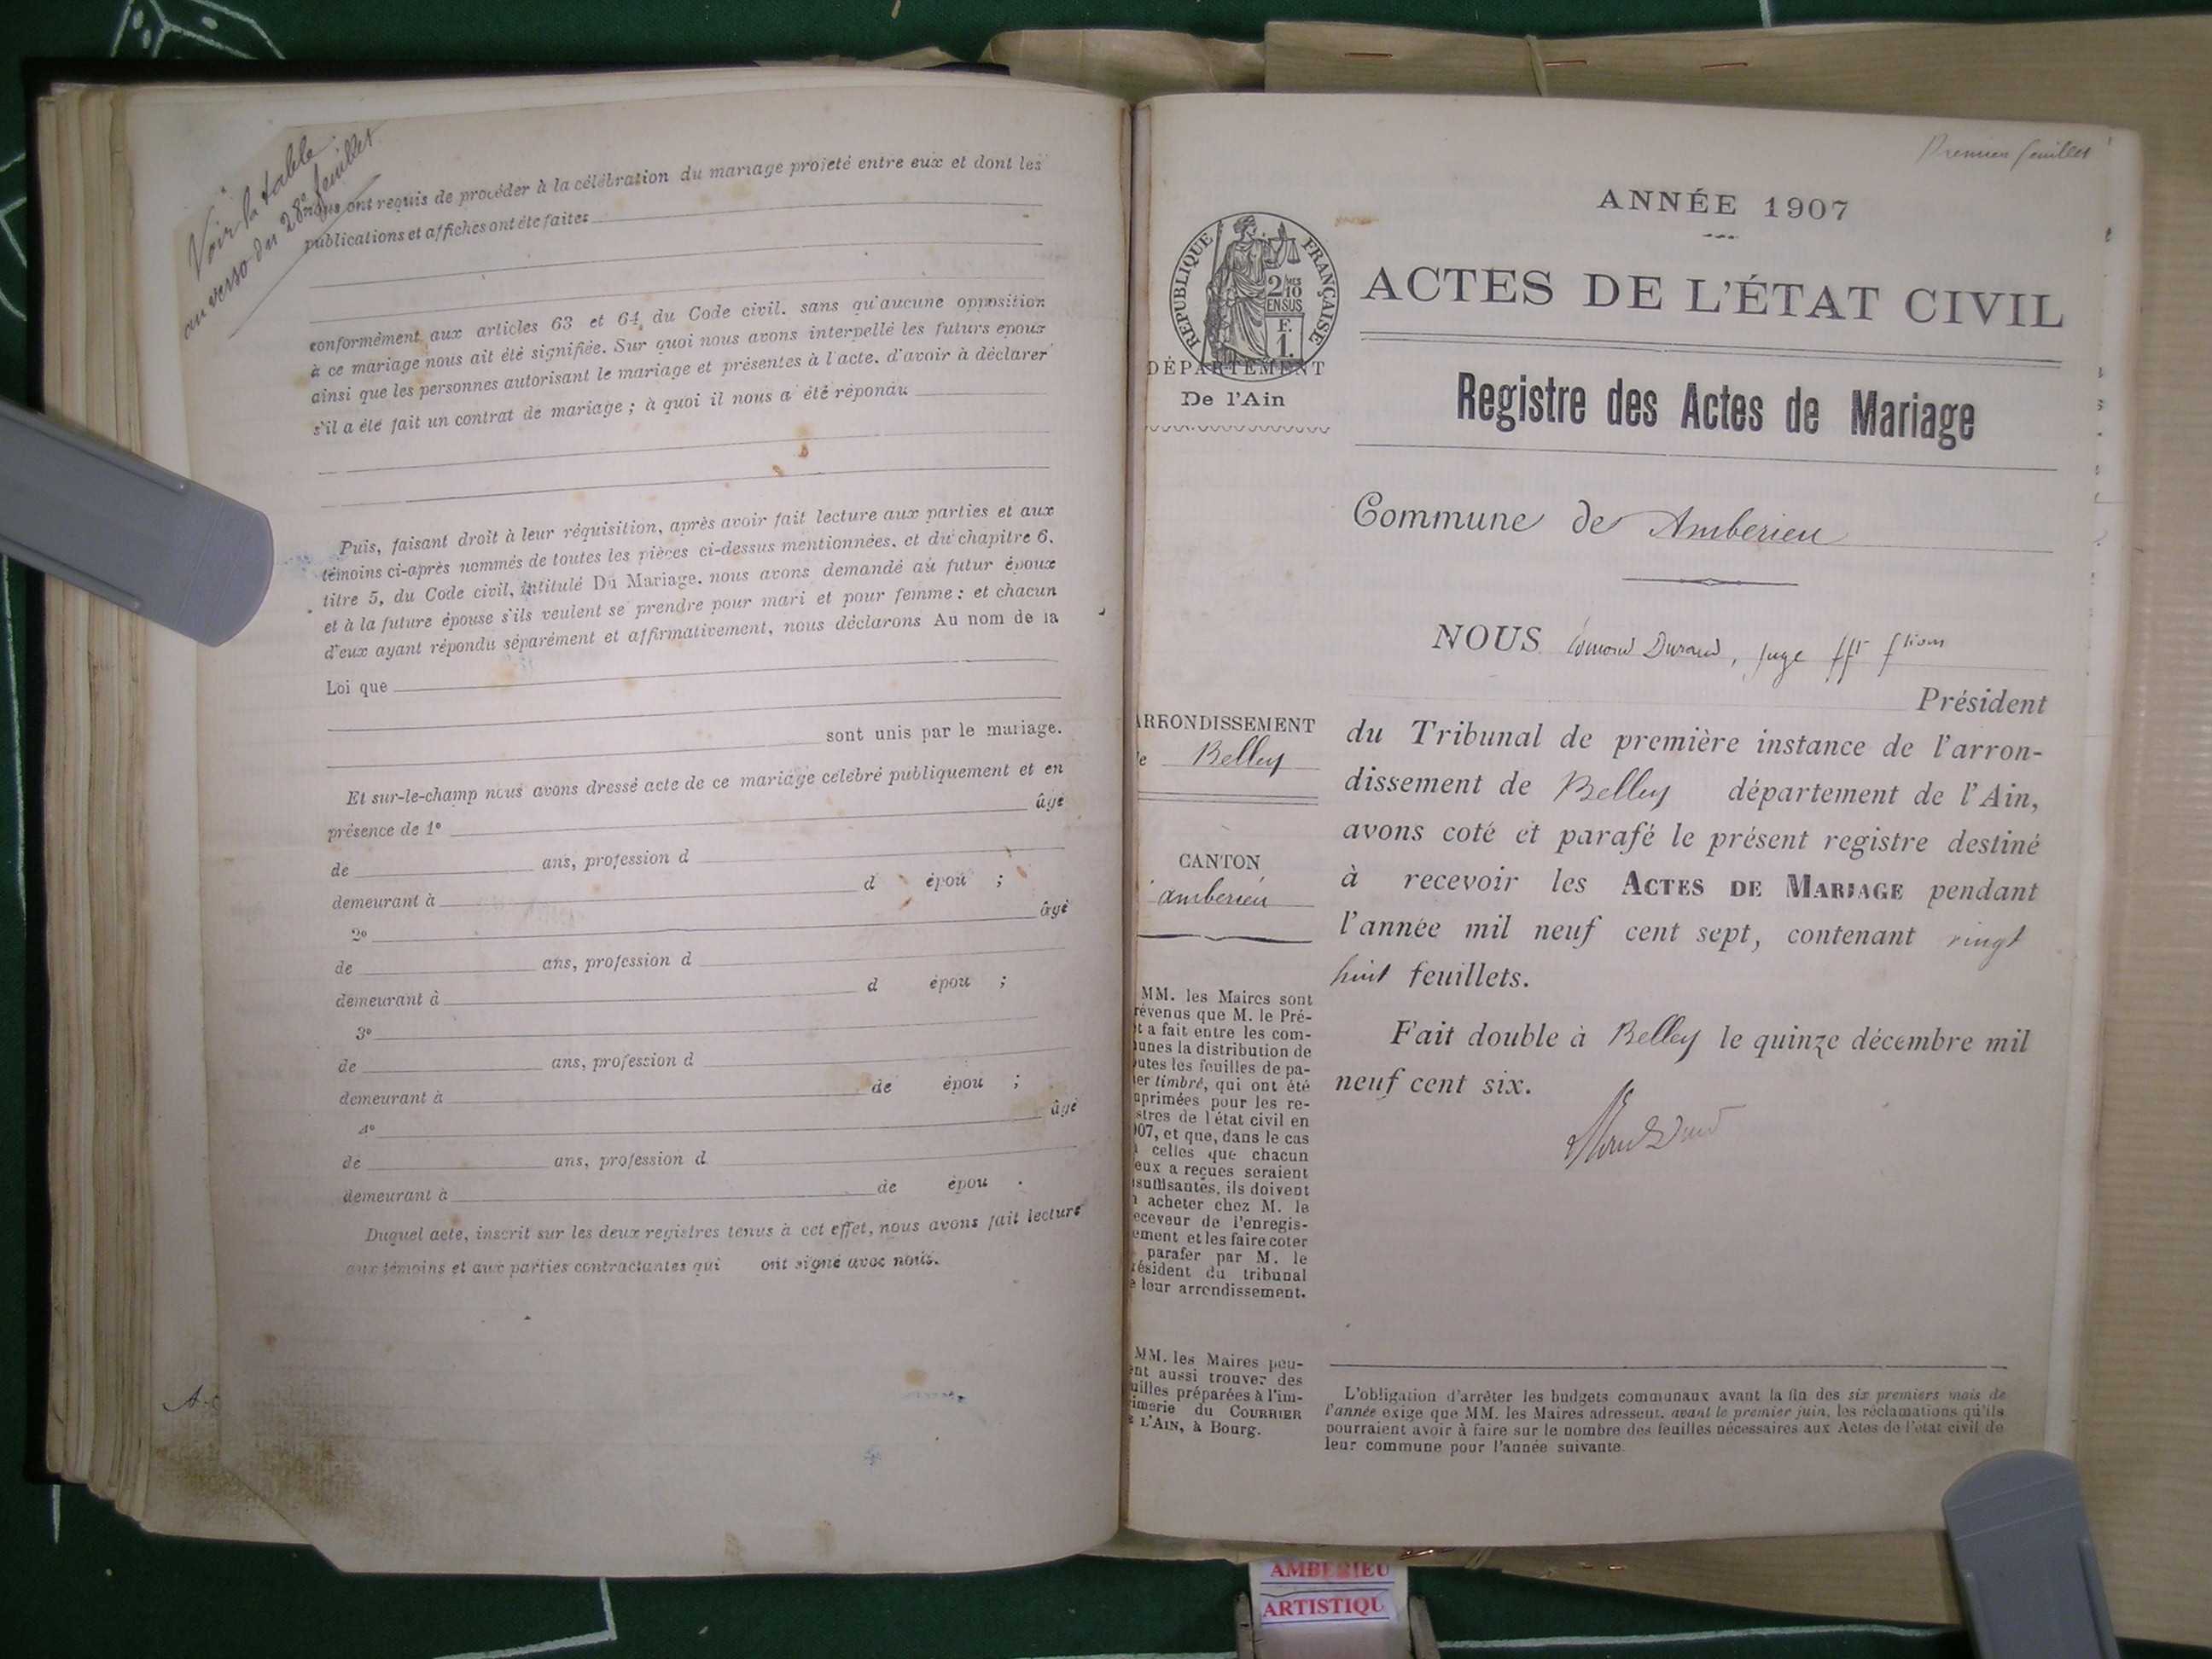 Voir la table
au verso du 28me feuillet
nous ont requis de procéder à la célébration du mariage projeté entre eux et dont les
publications et affiches ont été faites
conformément aux articles 63 et 64 du Code civil. sans qu'aucune opposition
à ce mariage nous ait été signifiée. Sur quoi nous avons interpellé les futurs epoux
ainsi que les personnes autorisant le mariage et présentes à l'acte. d'avoir à déclarer
s'il a été fait un contrat de mariage ; à quoi il nous a été répondu
Puis, faisant droit à leur réquisition, après avoir fait lecture aux parties et aux
témoins ci-après nommés de toutes les pièces ci-dessus mentionnées. et du chapitre 6.
titre 5, du Code civil, intitulé Du Mariage. nous avons demandé au futur époux
et à la future épouse s'ils veulent se prendre pour mari et pour femme : et chacun
d'eux ayant répondu séparément et affirmativement, nous déclarons Au nom de la
Loi que
sont unis par le mariage.
Et sur-le-champ nous avons dressé acte de ce mariage célébré publiquement et en
présence de 1° âgé
de ans, profession d
demeurant à d épou ;
2° âgé
de ans, profession d
demeurant à d épou ;
3°
de ans, profession d
demeurant à de épou ;
4° âgé
de ans, profession d
demeurant à de épou .
Duquel acte, inscrit sur les deux registres tenus à cet effet, nous avons fait lecture
aux témoins et aux parties contractantes qui ont signé avec nous.
Premier feuillet
ANNÉE 1907
ACTES DE L'ÉTAT CIVIL
RÉPUBLIQUE FRANÇAISE
2/10
EN SUS
F.
1.
DÉPARTEMENT
De l'Ain
Registre des Actes de Mariage
Commune de Amberieu
NOUS Edmond Durand, juge fft ftions
Président
ARRONDISSEMENT
e Belley
du Tribunal de première instance de l'arron-
dissement de Belley département de l'Ain,
avons coté et parafé le présent registre destiné
à recevoir les ACTES DE MARIAGE pendant
l'année mil neuf cent sept, contenant vingt
huit feuillets.
Fait double à Belley le quinze décembre mil
neuf cent six.
CANTON
amberieu
MM. les Maires sont
révenus que M. le Pré-
t a fait entre les com-
unes la distribution de
utes les feuilles de pa-
er timbré, qui ont été
mprimées pour les re-
stres de l'état civil en
07, et que, dans le cas
celles que chacun
eux a reçues seraient
suffisantes, ils doivent
acheter chez M. le
eceveur de l'enregis-
ement et les faire coter
parafer par M. le
résident du tribunal
e leur arrondissement.
MM. les Maires peu-
ent aussi trouver des
uilles préparées à l'im-
imerie du COURRIER
L'AIN, à Bourg.
L'obligation d'arrêter les budgets communaux avant la fin des six premiers mois de
l'année exige que MM. les Maires adressent. avant le premier juin, les réclamations qu'ils
pourraient avoir à faire sur le nombre des feuilles nécessaires aux Actes de l'état civil de
leur commune pour l'année suivante.
AMBERIEU
ARTISTIQU